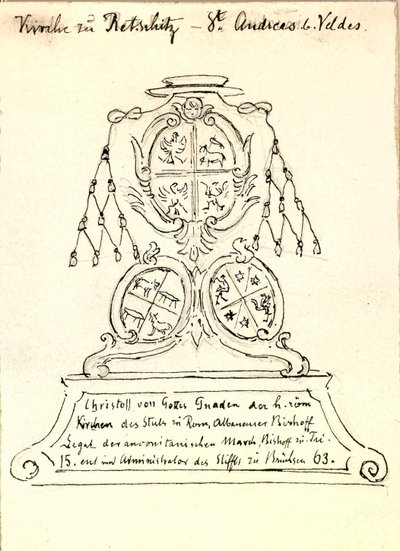 Kirche zu Retschitz – St. Andreas b. Veldes.
Christoff von Gottes Gnaden der h. röm
Kirchen des Stuls zu Rom, Albaneuser Bishoff
Legat der anconitanischen March Bishoff zu Tri-
15. ent und Administrator des Stiffts zu Brichsen 63.